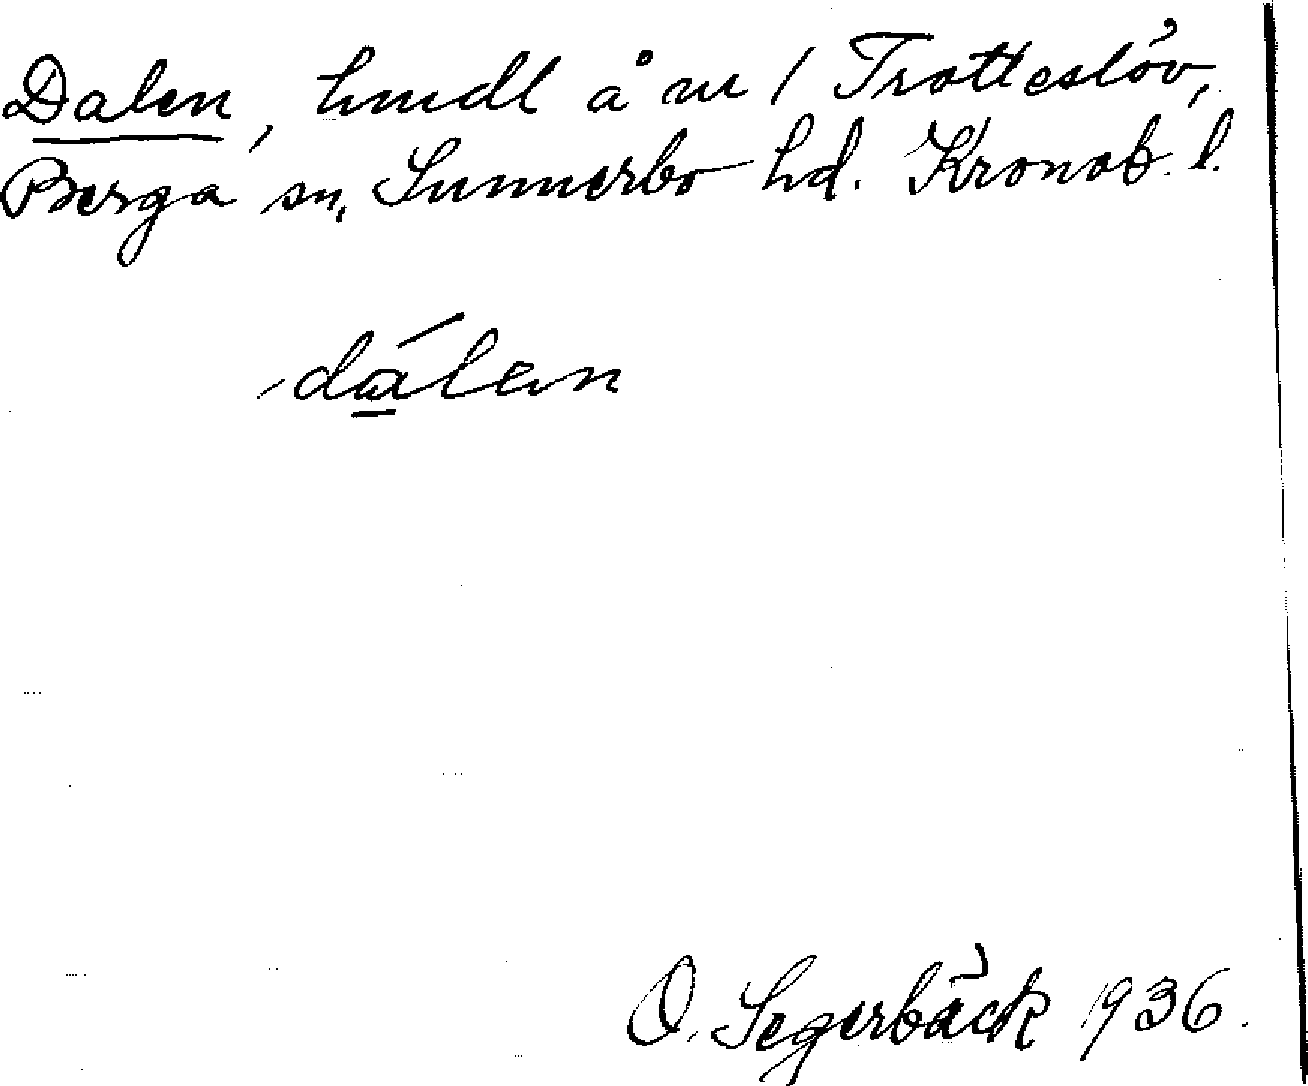 Dalen, hmdl å nr 1 Trotteslöv,
Berga sn, Sunnerbo hd. Kronob. l.
dálen
O. Segerbäck 1936.